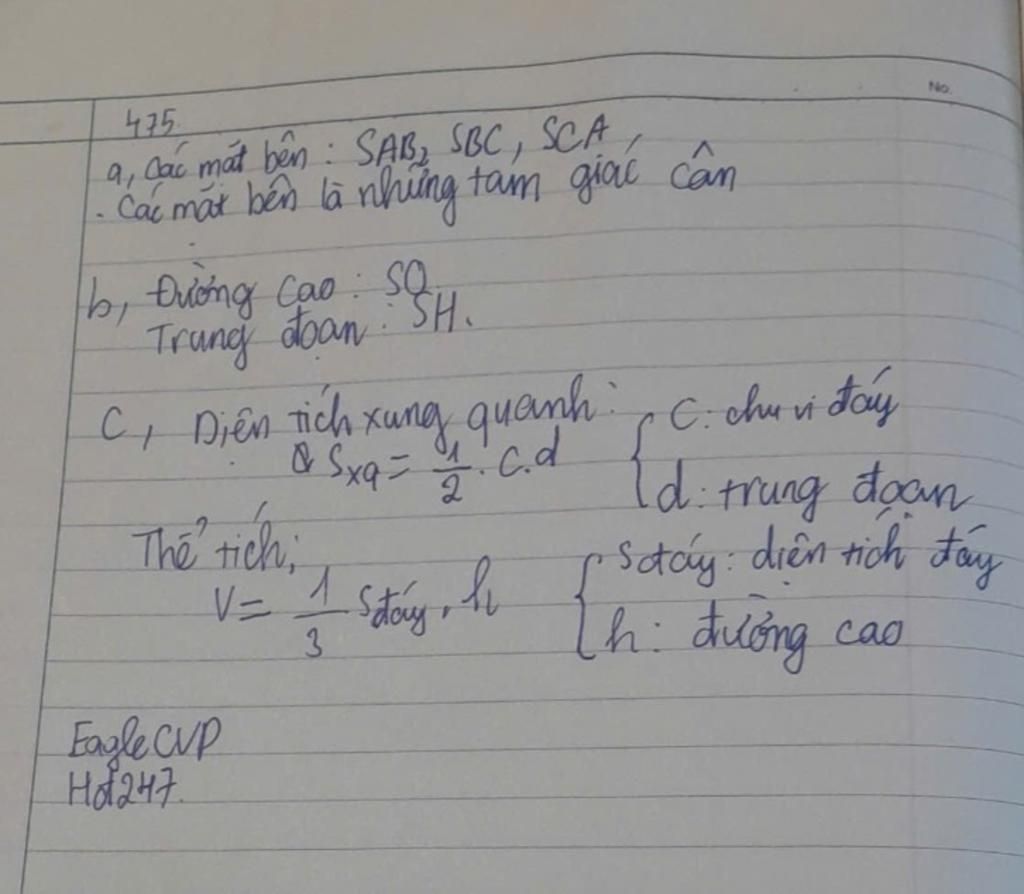 No.
475.
a, Các mặt bên: SAB, SBC, SCA,
. Các mặt bên là những tam giác cân
b, Đường cao: SO
Trung đoạn: SH.
C, Diện tích xung quanh: { C: chu vi đáy
Sxq = 1/2 . C.d { d: trung đoạn
Thể tích; { Sđáy: diện tích đáy
V = 1/3 Sđáy . h { h: đường cao
EagleCVP
Hd247.